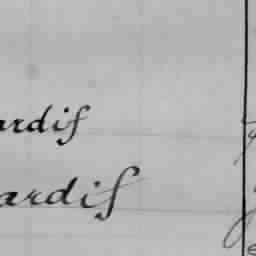 ardif
ardif